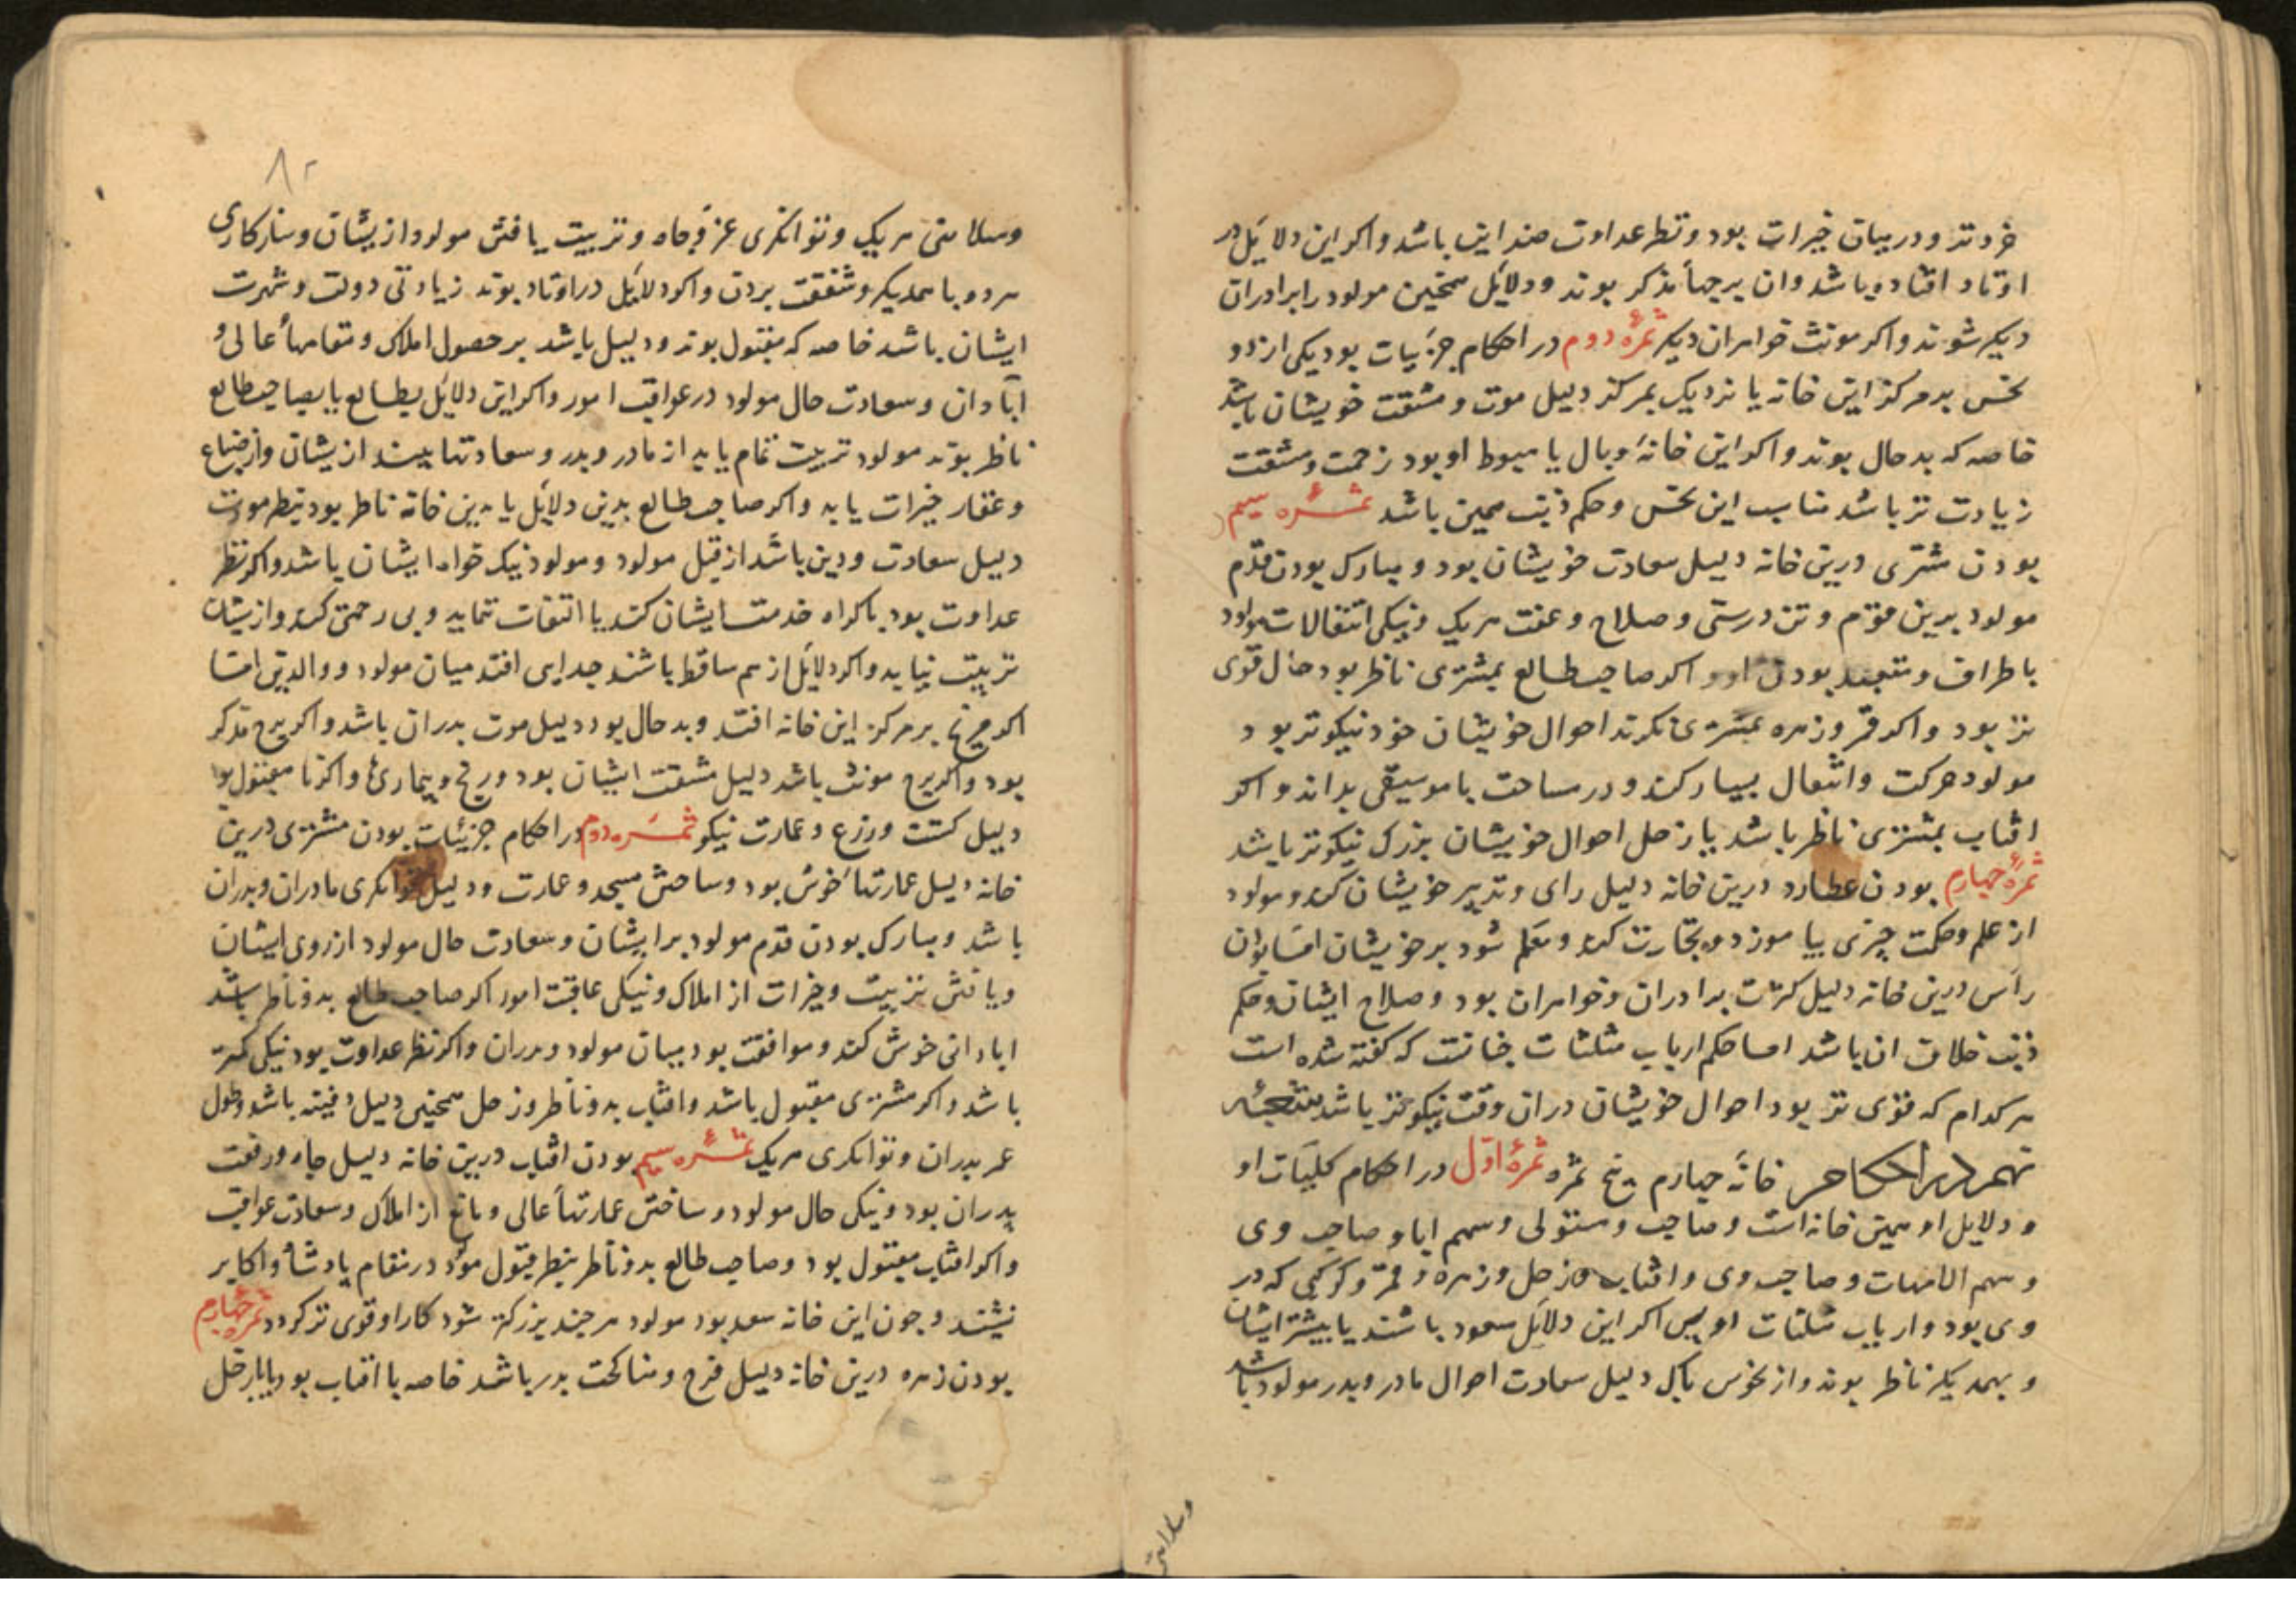 خرد تر و در بیان خیرات بود و نظر عداوت ضد این باشد و اکر این دلایل در
اوتاد افتاده باشد وان برجها مذکر بوند و دلایل همچنین مولود را برادران
دیکر شوند و اکر مونث خواهران دیکر ثمرهٔ دوم در احکام جزییات بودیکی از دو
نحس بر مرکز این خانه یا نزدیک بمرکز دلیل موت و مشقت خویشان باشد
خاصه که بد حال بوند و اکر این خانه وبال یا هبوط او بود زحمت و مشقت
زیادت تر باشد مناسب این نحس و حکم ذنب همین باشد ثمــره سیم
بودن مشتری درین خانه دلیل سعادت خویشان بود و مبارک بودن قدم
مولود برین قوم و تن درستی و صلاح و عفت هریک و نیکی انتقالات مولود
باطراف و بودن او و اکر صاحب طالع بمشتری ناظر بود حال قوی
تر بود و اکر قمر و زهره بمشتری نکرند احوال خویشان خود نیکوتر بود و
مولود حرکت و انتقال بسیار کند و در مساحت یا موسیقی بداند و اکر
افتاب بمشتری ناظر باشد یا زحل احوال خویشان بزرک نیکوتر باشد
ثمرهٔ چهارم بودن عطارد درین خانه دلیل رای و تدبیر خویشان کند و مولود
از علم و حکمت چیزی بیاموزد و تجارت کند و معلم شود بر خویشان اما بودن
راس درین خانه دلیل کثرت برادران و خواهران بود و صلاح ایشان و حکم
ذنب خلاف ان باشد اما حکم ارباب مثلثات چنانست که کفته شده است
هرکدام که قوی تر بود احوال خویشان دران وقت نیکوتر باشد
در احکام خانهٔ چهارم پنج ثمره ثمرهٔ اول در احکام کلیات او
و دلایل او همین خانه است و صاحب و مستولی و سهم ابا و صاحب وی
و سهم الامهات و صاحب وی و افتاب و زحل و زهره و قمر و کوکبی که در
وی بود و ارباب مثلثات او پس اکر این دلایل سعود باشند یا بیشتر ایشان
و بهمدیکر ناظر بوند و از نحوس پاک دلیل سعادت احوال مادر و پدر مولود باشد
وسلامتی
وسلامتی هریک و توانکری عز و جاه و تربیت یافتن مولود ازیشان و سازکاری
هردو باهمدیکر و شفقت بردن و اکر دلایل در اوتاد بوند زیادتی دولت و شهرت
ایشان باشد خاصه که مقبول بوند و دلیل باشد بر حصول املاک و مقامها عالی و
ابادان و سعادت حال مولود در عواقب امور و اکر این دلایل بطالع یا بصاحب طالع
ناظر بوند مولود تربیت تمام یابد از مادر و پدر و سعادتها بیند ازیشان و از ضیاع
و عقار خیرات یابد و اکر صاحب طالع بدین دلایل یا بدین خانه ناظر بود بنظر مودت
دلیل سعادت و دین باشد از قبل مولود و مولود نیک خواه ایشان باشد و اکر نظر
عداوت بود باکراه خدمت ایشان کند یا التفات ننماید و بی رحمتی کند و ازیشان
تربیت نیابد و اکر دلایل از هم ساقط باشند جدایی افتد میان مولود و والدین اما
اکر مریخ بر مرکز این خانه افتد و بد حال بود دلیل موت پدران باشد و اکر برج مذکر
بود و اکر برج مونث باشد دلیل مشقت ایشان بود و رنج و بیماری و اکر نا مقبول بود
دلیل کشت و زرع و عمارت نیکو ثمــره دوم در احکام جزئیات بودن مشتری درین
خانه دلیل عمارتها خوش بود و ساختن مسجد و عمارت و دلیل توانکری مادران و پدران
باشد و مبارک بودن قدم مولود بر ایشان و سعادت حال مولود از روی ایشان
و یافتن تربیت و خیرات از املاک و نیکی عاقبت امور اکر صاحب طالع بدو ناظر باشد
ابادانی خوش کند و موافقت بود میان مولود و پدران و اکر نظر عداوت بود نیکی کمتر
باشد و اکر مشتری مقبول باشد و افتاب بدو ناظر و زحل همچنین دلیل دفینه باشد و طول
عمر پدران و توانکری هریک ثمــره سیم بودن افتاب درین خانه دلیل جاه و رفعت
پدران بود و نیکی حال مولود و ساختن عمارتها عالی و باغ از املاک و سعادت عواقب
و اکر افتاب مقبول بود و صاحب طالع بدو ناظر بنظر قبول مولود در مقام پادشا و اکابر
نشیند و چون این خانه سعد بود مولود هرچند بزرکتر شود کار او قوی تر کردد ثمره چهارم
بودن زهره درین خانه دلیل فرح و مناکحت پدر باشد خاصه با افتاب بود یا با زحل